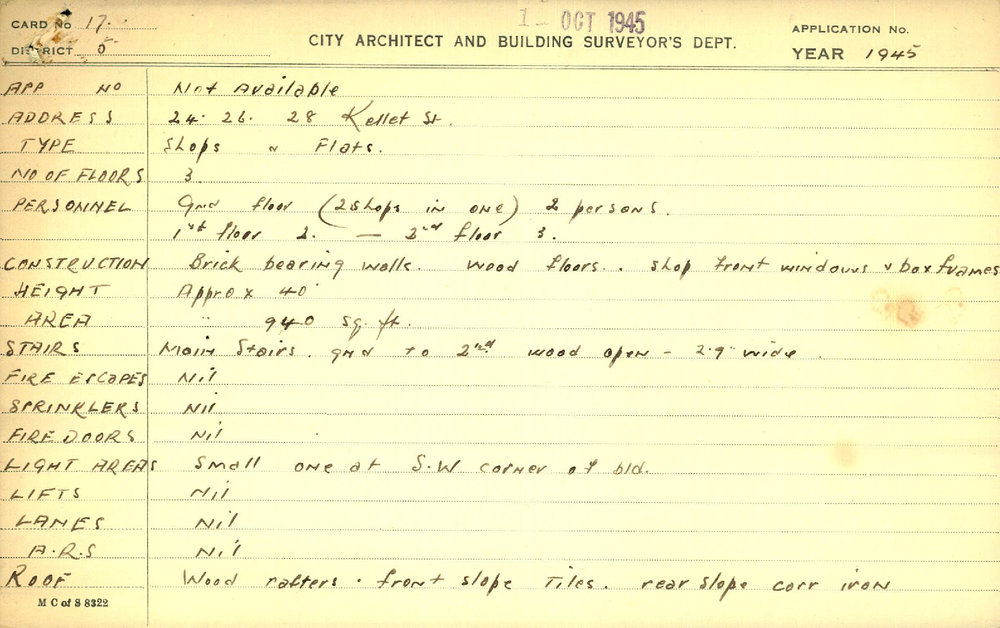 CARD No 17.
1 - OCT 1945
DISTRICT 5
CITY ARCHITECT AND BUILDING SURVEYOR'S DEPT.
APPLICATION No.
YEAR 1945
APP NO Not Available
ADDRESS 24. 26. 28 Kellet St.
TYPE Shops & Flats.
NO OF FLOORS 3.
PERSONNEL Gnd floor (2 shops in one) 2 persons.
1st floor 2. — 2nd floor 3.
CONSTRUCTION Brick bearing walls. Wood floors.. Shop front windows & box frames
HEIGHT Approx 40'
AREA " 940 sq. ft.
STAIRS Main Stairs. gnd to 2nd wood open - 2'9" wide.
FIRE ESCAPES Nil
SPRINKLERS Nil
FIRE DOORS Nil
LIGHT AREAS Small one at S.W corner of bld.
LIFTS Nil
LANES Nil
A.R.S Nil
ROOF Wood rafters. front slope Tiles. rear slope corr iron
M C of S 8322